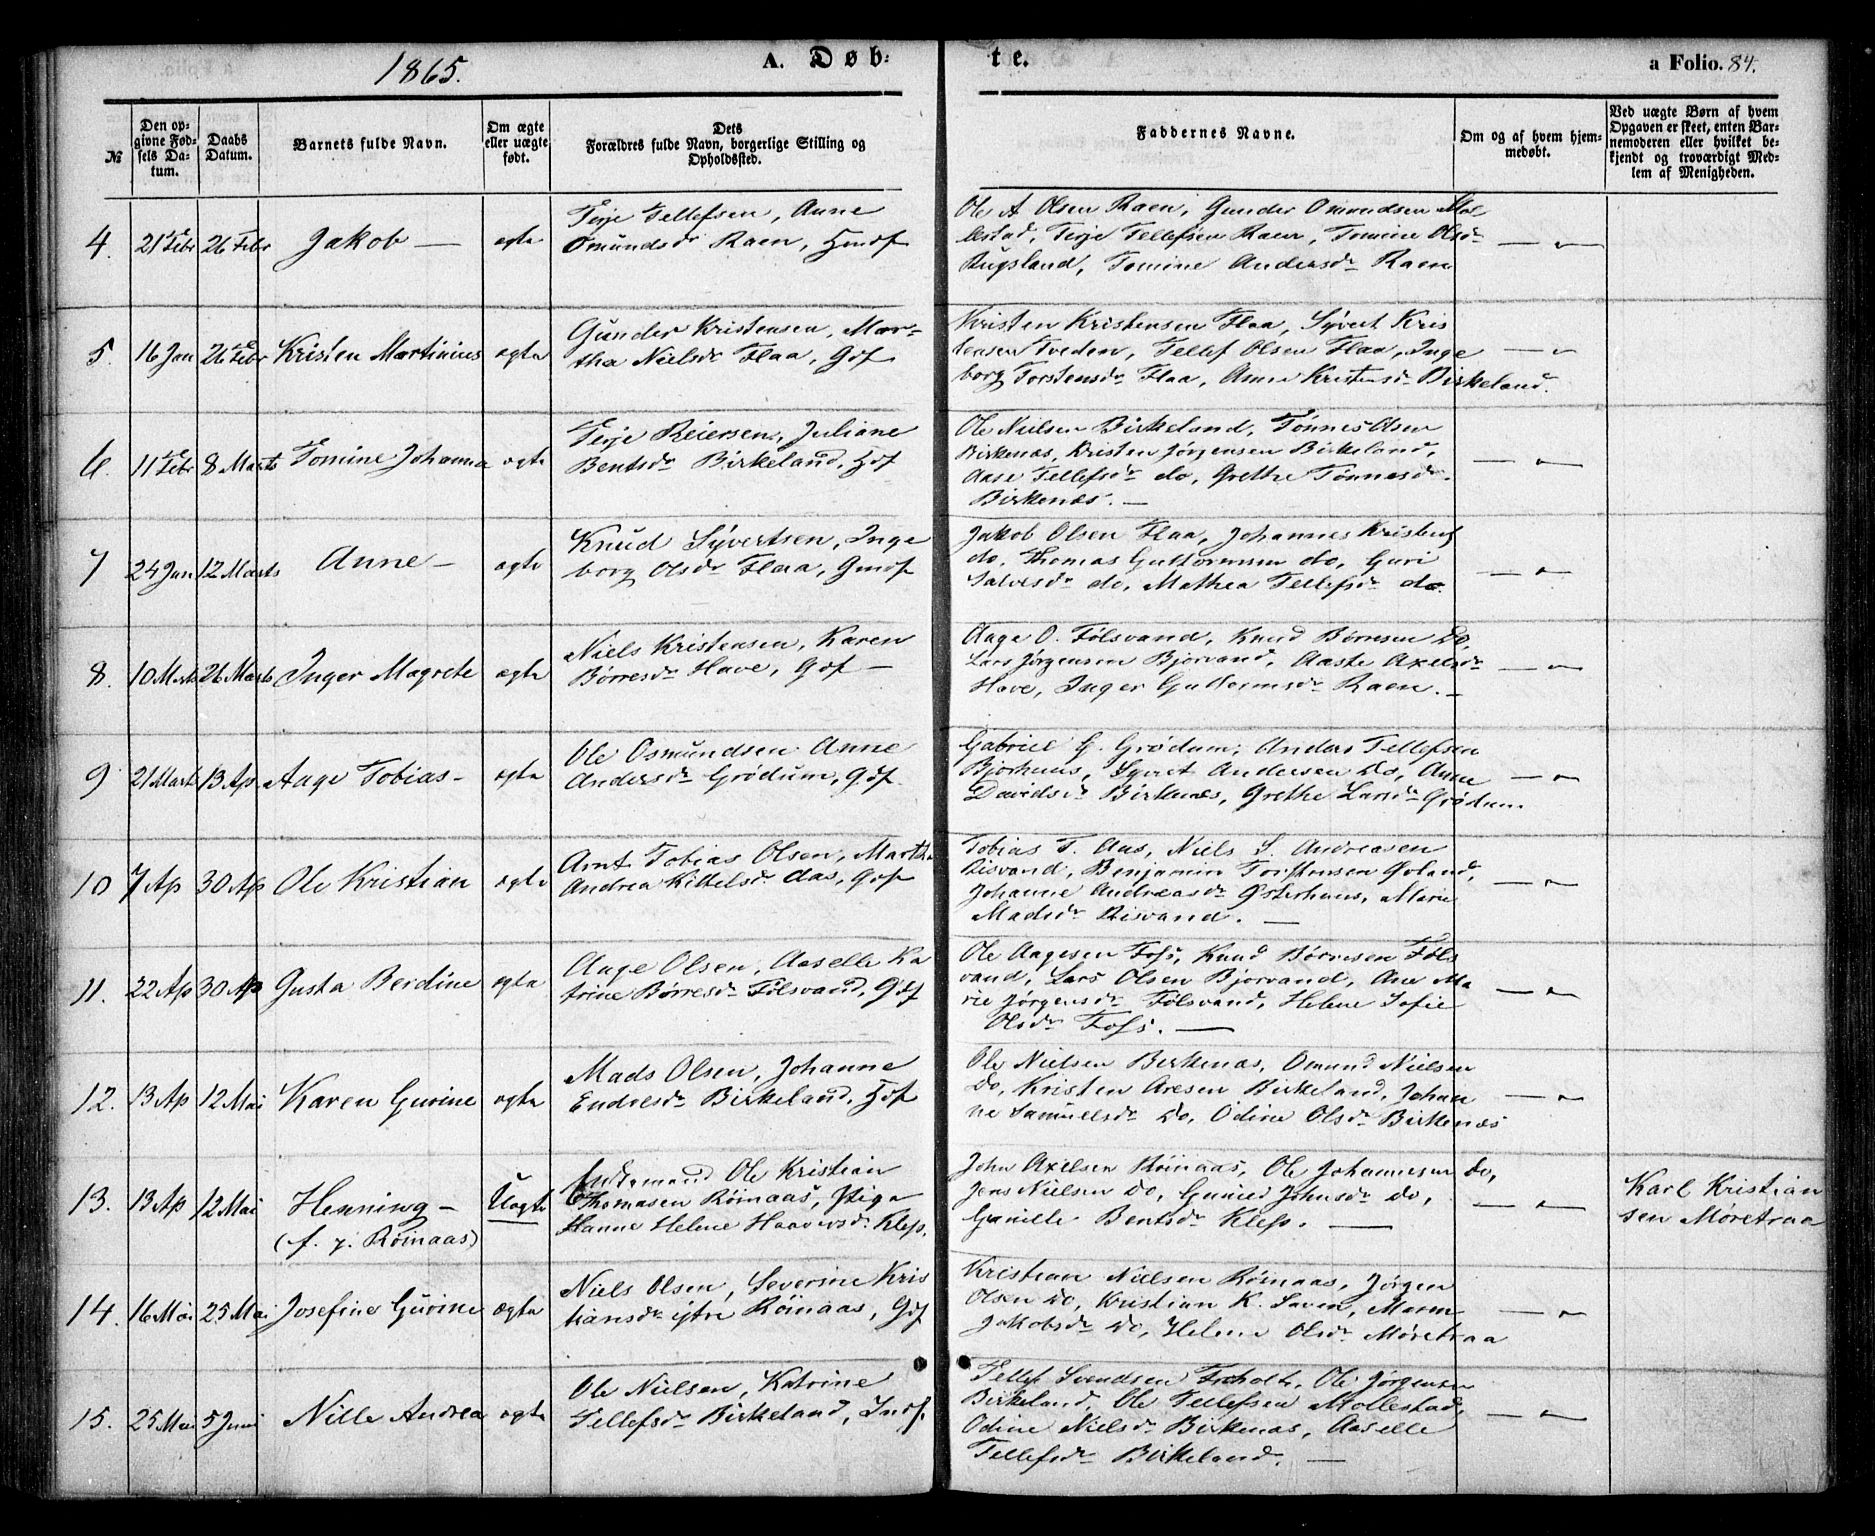 1865.
A. Døb-
te.
a Folio. 84.
№
Den op-
givne Fød-
sels Da-
tum.
Daabs
Datum.
Barnets fulde Navn.
Om ægte
eller uægte
født.
Dets
Forældres fulde Navn, borgerlige Stilling og
Opholdssted.
Faddernes Navne.
Om og af hvem hjem-
medøbt.
Ved uægte Børn af hvem
Opgaven er skeet, enten Bar-
nemoderen eller hvilket be-
kjendt og troværdigt Med-
lem af Menigheden.
4. 21 Febr 26 Febr Jakob — ægte
Terje Tellefsen, Anne
Omundsdr Raen,
Ole A Olsen Raen, Gunder Omundsen Mol-
lestad, Terje Tellefsen Raen, Tomine Olsdr
Rugsland, Tomine Andersdr Raen
— " —
5. 16 Jan 26 Febr Kristen Martinius ægte
Gunder Kristensen, Mar-
tha Nielsdr Flaa, Gdf
Kristen Kristensen Flaa, Syvert Kris
tensen Tveden, Tellef Olsen Flaa, Inge
borg Torstensdr Flaa, Anne Kristensdr Birkeland.
— " —
6. 11 Febr 8 Marts Tomine Johanna ægte
Terje Reiersen, Juliane
Bentsdr Birkeland, Hdf
Ole Nielsen Birkeland, Tønnes Olsen
Birkenæs, Kristen Jørgensen Birkeland,
Aase Tellefsdr do, Grethe Tønnesdr
Birkenæs. —
— " —
7 24 Jan 12 Marts Anne — ægte
Knud Syvertsen, Inge
borg Olsdr Flaa, Gmdf
Jakob Olsen Flaa, Johannes Kristens
do, Thomas Guttormsen do, Guri
Salvesdr do, Mathea Tellefsdr do.
— " —
8. 10 Mrts 26 Marts Inger Magrete ægte
Niels Kristensen, Karen
Børresdr Have, Gdf —
Aage O. Følsvand, Knud Børresen Do,
Lars Jørgensen Bjorvand, Aaste Axelsdr
Have, Inger Guttormsdr Raen. —
— " —
9 21 Marts 13 Ap. Aage Tobias — ægte
Ole Osmundsen Anne
Andersdr Grødum, Gdf.
Gabriel G. Grødum, Anders Tellefsen
Bjorhuus, Syvert Andersen Do, Anne
Davidsdr Birkenæs, Grethe Larsdr Grødum.
— " —
10 7 Ap 30 Ap Ole Kristian ægte
Arnt Tobias Olsen, Martha
Andrea Kittelsdr Aas, Gdf
Tobias T. Aas, Niels S. Andreasen
Risvand, Benjamin Torstensen Øvland,
Johanne Andreasdr Østerhuus, Marie
Madsdr Risvand. —
— " —
11. 22 Ap 30 Ap Gusta Berdine ægte
Aage Olsen, Aaselle Ka
trine Børresdr Følsvand, Gdf
Ole Aagesen Foss, Knud Børresen Føls
vand, Lars Olsen Bjorvand, Ane Ma
rie Jørgensdr Følsvand, Helene Sofie
Olsdr Foss. —
— " —
12. 13 Ap 12 Mai Karen Gurine ægte
Mads Olsen, Johanne
Endresdr Birkeland, Hdf
Ole Nielsen Birkenæs, Omund Nielsen
Do, Kristen Aresen Birkeland, Johan
ne Samuelsdr Do, Odine Olsdr Birkenæs
— " —
13. 13 Ap 12 Mai Henning —
(f. p. Røinaas)
Uægte
Ole Kristian
Thomasen Røinaas, Pige
Hanne Helene Haaversdr Klep.
John Axelsen Røinaas, Ole Johannesen Do,
Jens Nielsen Do, Gunild Johnsdr Do,
Gunille Bentsdr Klep. —
— " —
Karl Kristian
sen Møretraa
14. 16 Mai 25 Mai Josefine Gurine ægte
Niels Olsen, Severine Kris
tiansdr ytre Røinaas, Gdf
Kristian Nielsen Røinaas, Jørgen
Olsen Do, Kristian K. Saven, Maren
Jakobsdr Do, Helene Olsdr Møretraa
— " —
15. 25 Mai 5 Juni Nille Andrea ægte
Ole Nielsen, Katrine
Tellefsdr Birkeland, Indf.
Tellef Svendsen Froholt, Ole Jørgensen
Birkeland, Ole Tellefsen Mollestad,
Odine Nielsdr Birkenæs, Aaselle
Tellefsdr Birkeland. —
— " —